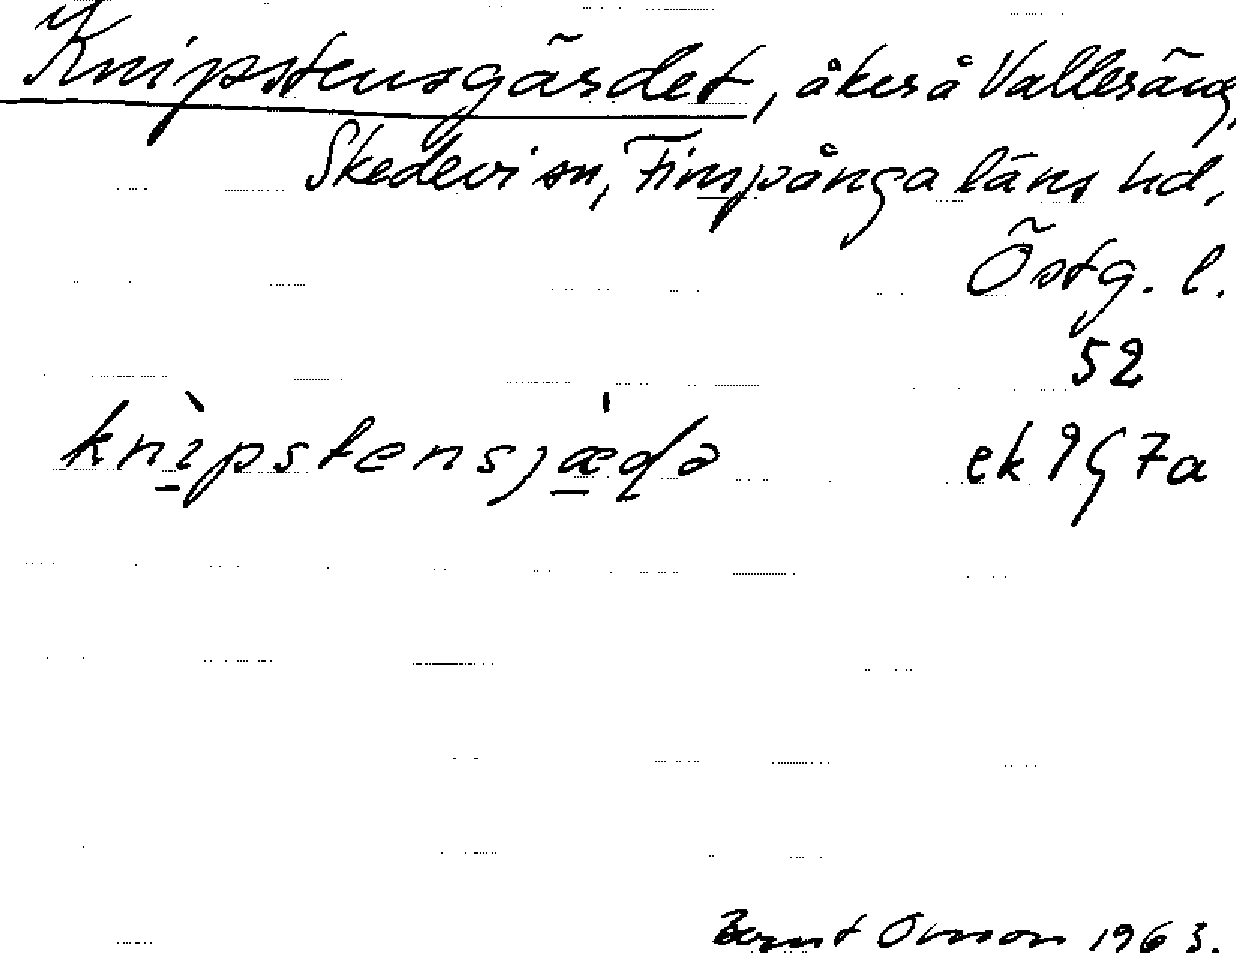 Knipstensgärdet, åker å Valleräng,
Skedevi sn, Finspånga läns hd,
Östg. l.
52
knìpstensjæ̍ḍə ek 9G7a
Bernt Orrson 1963.